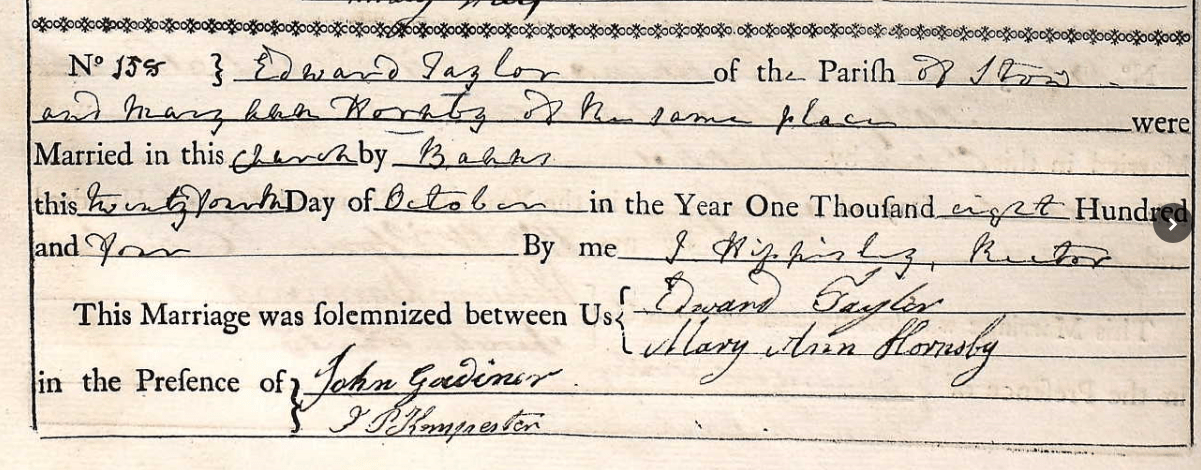 Nº 158 } Edward Taylor of the Pariſh of Stow
and Mary Ann Hornsby of the same place were
Married in this Church by Banns
this twenty fourth Day of October in the Year One Thouſand eight Hundred
and Four By me J Hippisley, Rector
This Marriage was ſolemnized between Us { Edward Taylor
Mary Ann Hornsby
in the Preſence of } John Gardiner